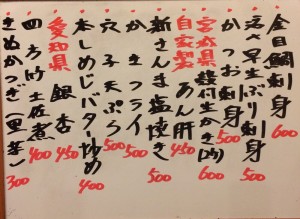 金目鯛刺身 600
活〆早生ぶり刺身 500
かつお刺身 500
宮城県 殻付生かき 600
自家製 あん肝 450
新さんま塩焼き 500
かきフライ 500
穴子天ぷら 500
本しめじバター炒め 400
愛知県 銀杏 450
四方竹土佐煮 400
きぬかつぎ(里芋) 300